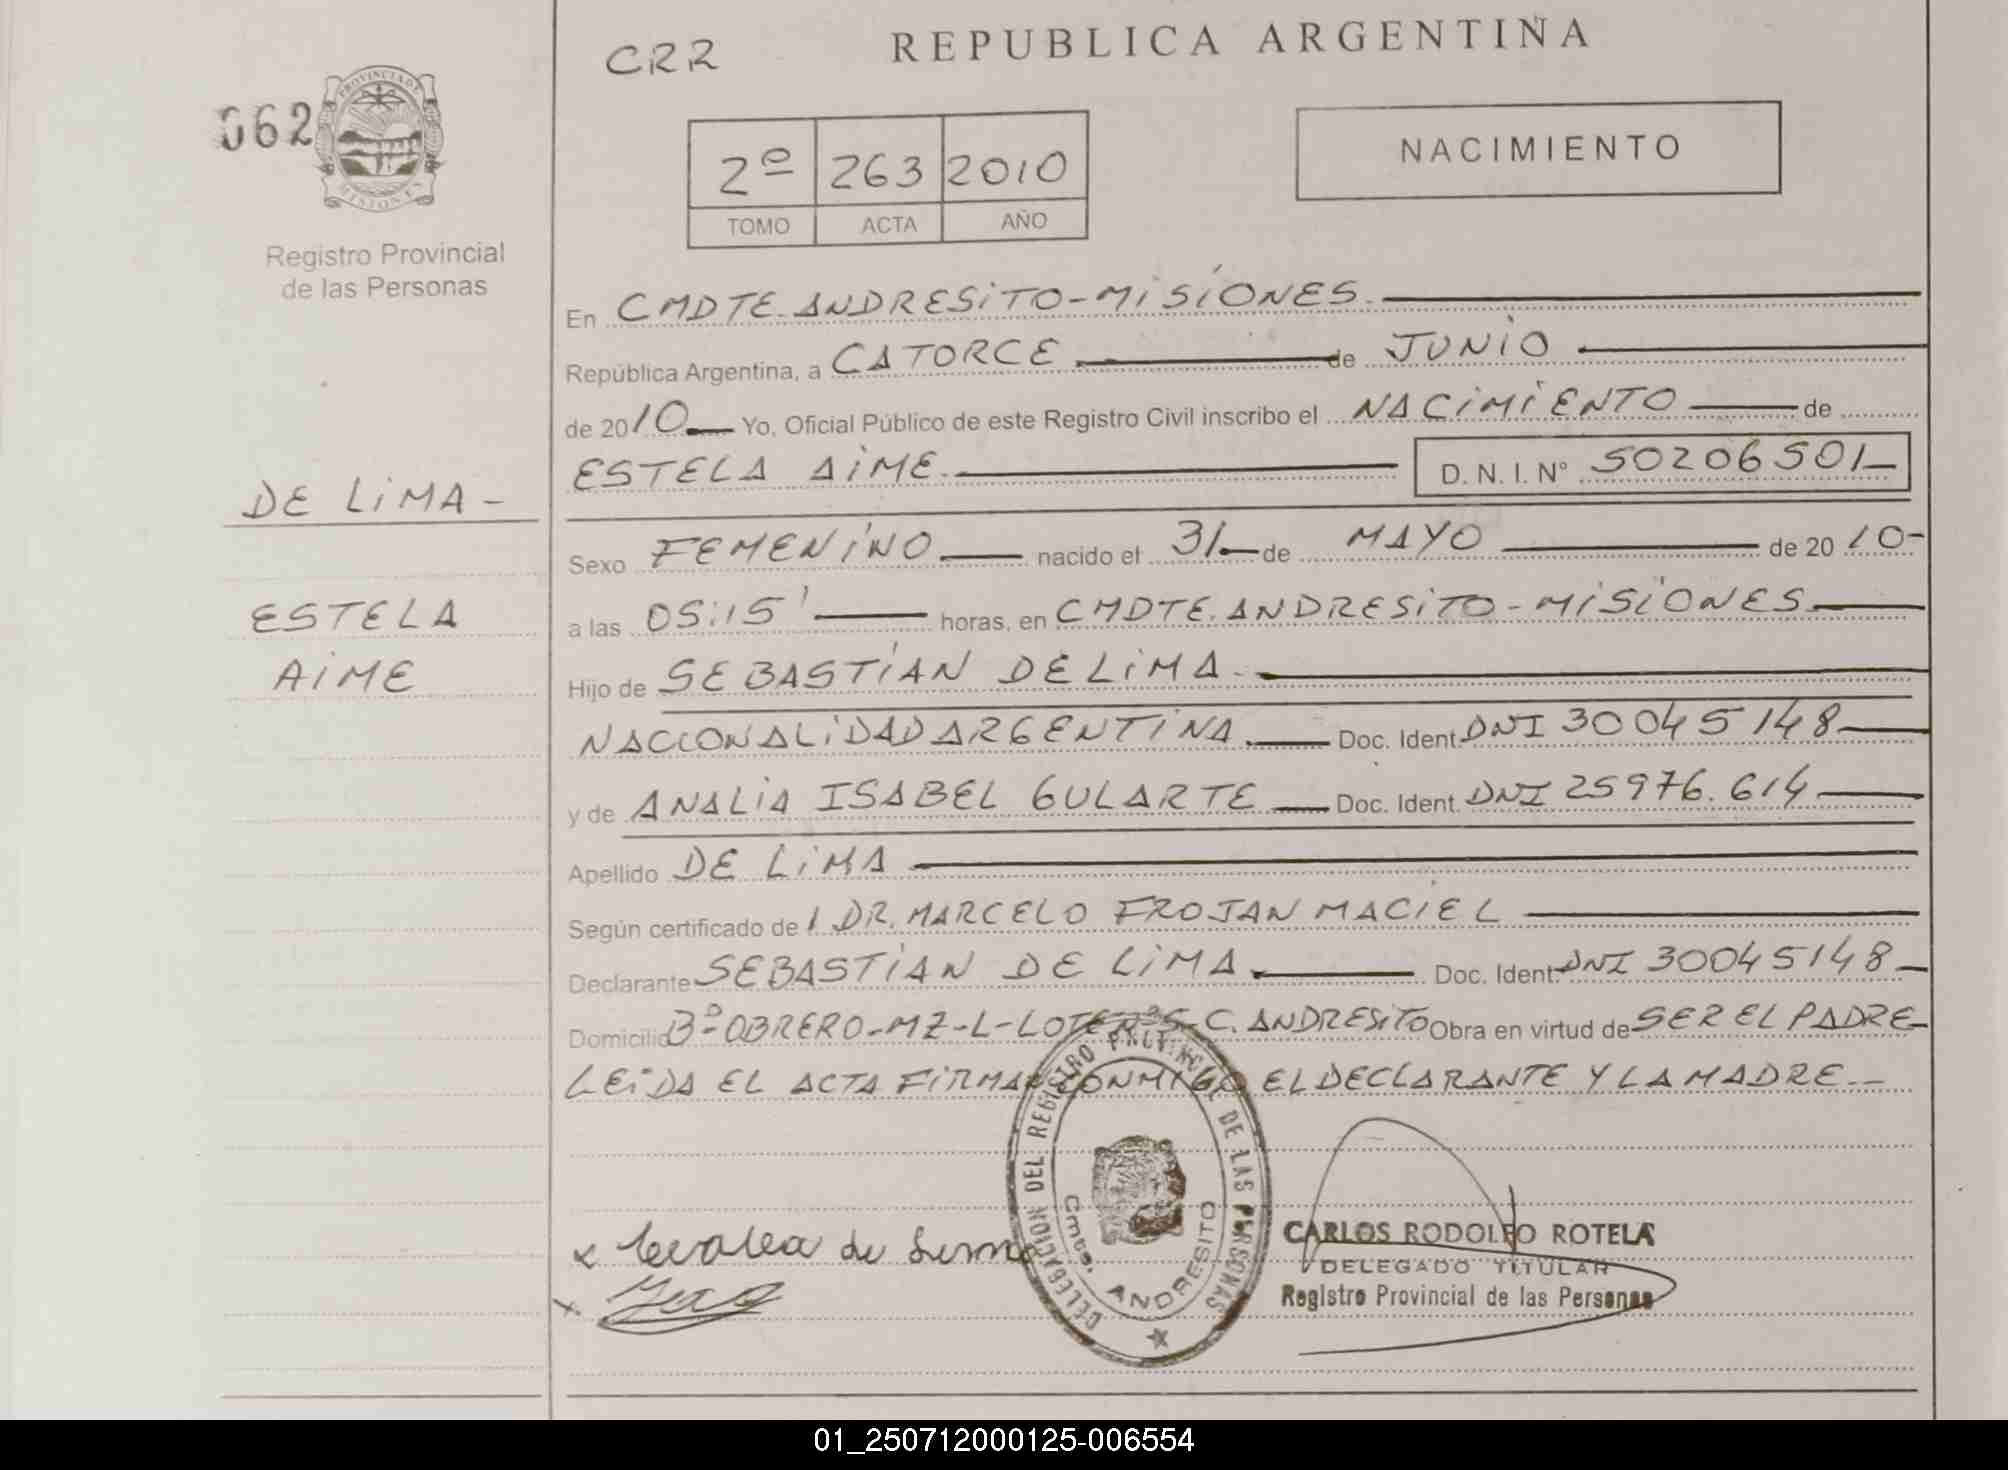 CRR
REPUBLICA ARGENTINA
062
PROVINCIA DE MISIONES
2º 263 2010
TOMO ACTA AÑO
NACIMIENTO
Registro Provincial
de las Personas
En CMDTE. ANDRESITO-MISIONES.
República Argentina, a CATORCE de JUNIO
de 2010 Yo, Oficial Público de este Registro Civil inscribo el NACIMIENTO de
ESTELA AIME D. N. I. Nº 50206501
DE LIMA -
Sexo FEMENINO nacido el 31 de MAYO de 2010-
ESTELA
a las 05:15' horas, en CMDTE. ANDRESITO-MISIONES
AIME
Hijo de SEBASTIAN DE LIMA
NACIONALIDAD ARGENTINA. Doc. Ident. DNI 30045148
y de ANALIA ISABEL GULARTE Doc. Ident. DNI 25976.614
Apellido DE LIMA
Según certificado de l DR. MARCELO FROJAN MACIEL
Declarante SEBASTIAN DE LIMA Doc. Ident. DNI 30045148
Domicilio Bº OBRERO-MZ-L-LOTE Nº 5-C. ANDRESITO Obra en virtud de SER EL PADRE
LEIDA EL ACTA FIRMAN CONMIGO EL DECLARANTE Y LA MADRE
DELEGACION DEL REGISTRO PROVINCIAL DE LAS PERSONAS
Cmte. ANDRESITO
de Lima
CARLOS RODOLFO ROTELA
DELEGADO TITULAR
Registro Provincial de las Personas
01_250712000125-006554